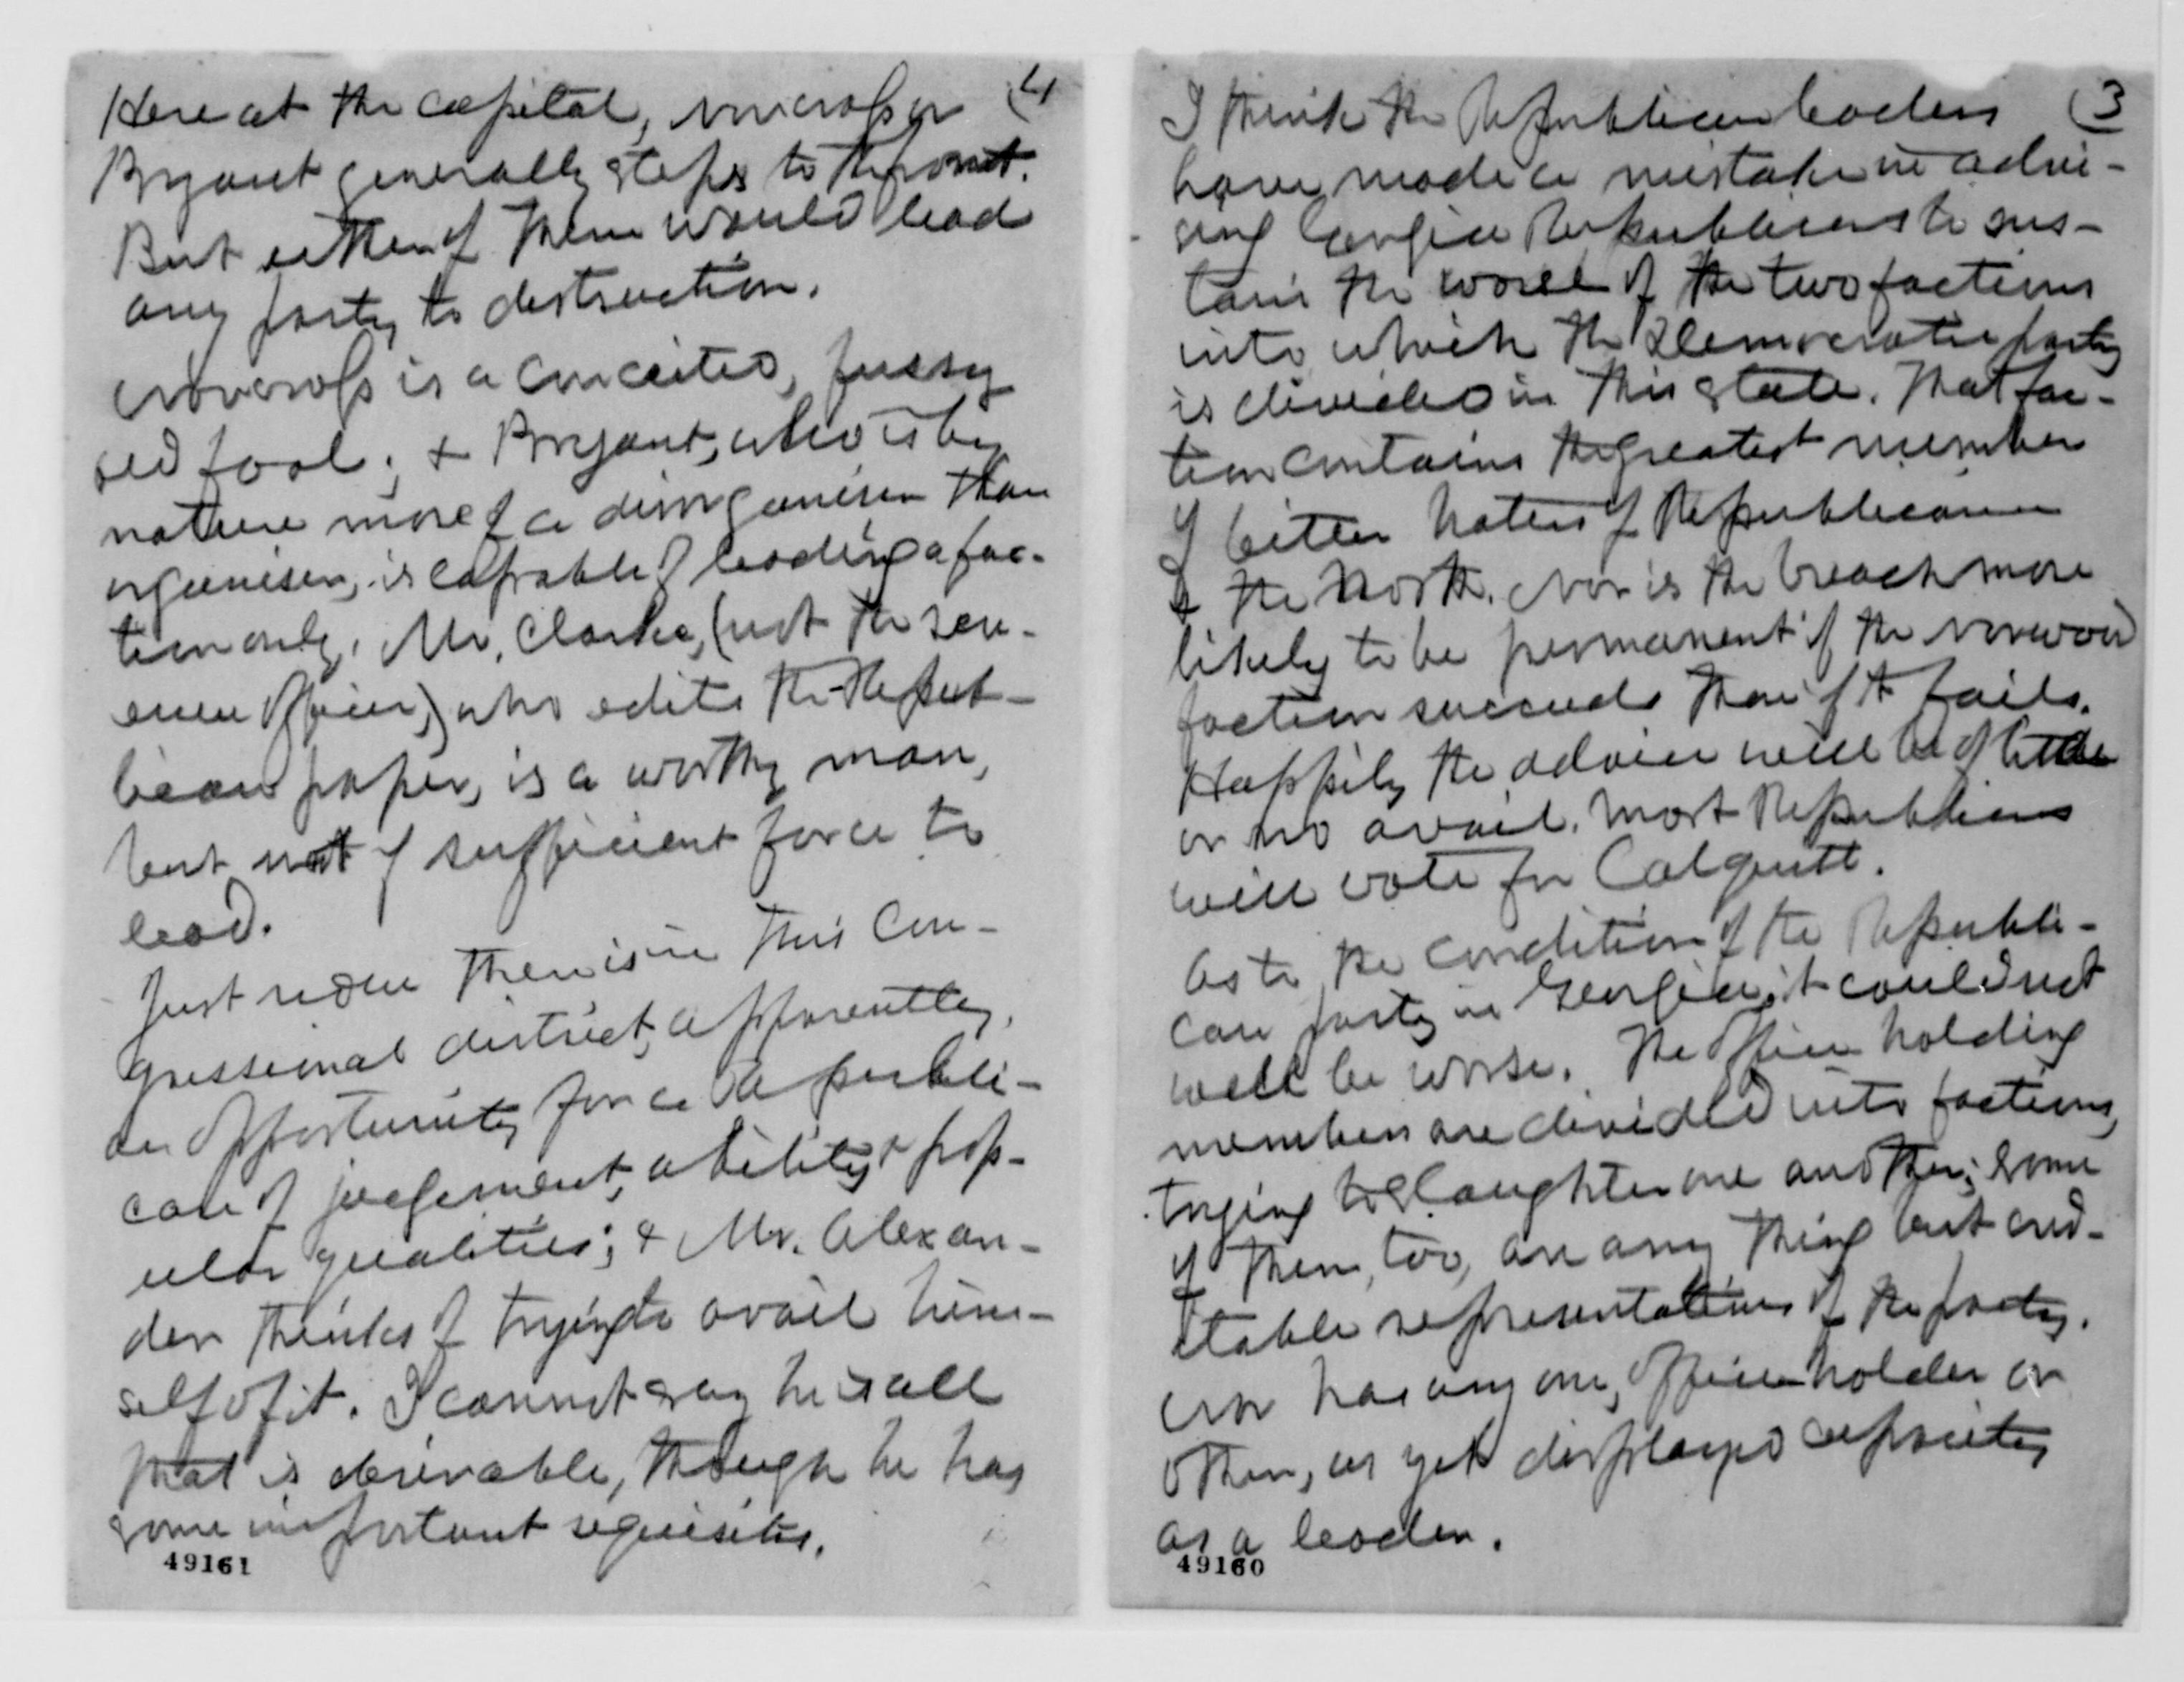 Here at the capital, Norcross or (4
Bryant generally steps to the front.
But either of them would lead
any party to destruction.
Norcross is a conceited, fussy
old fool; & Bryant, who is by
nature more of a disorganiser than
organiser, is capable of leading a fac-
tion only. Mr. Clarke, (not the rev-
enue officer,) who edits the Repub-
lican paper, is a worthy man,
but not of sufficient force to
lead.
Just now there is in this Con-
gressional district, apparently,
an opportunity for a Republi-
can of judgement, ability & pop-
ular qualities; & Mr. Alexan-
der thinks of trying to avail him-
self of it. I cannot say he is all
that is desirable, though he has
some important requisites.
49161
I think the Republican leaders (3
have made a mistake in advi-
sing Georgia Republicans to sus-
tain the worst of the two factions
into which the Democratic party
is divided in this state. That fac-
tion contains the greatest number
of bitter haters of Republicanism
& the North. Nor is the breach more
likely to be permanent if the Norwood
faction succeeds than if it fails.
Happily the advice will be of little
or no avail. Most Republicans
will vote for Colquitt.
As to the condition of the Republi-
can party in Georgia, it could not
well be worse. The office holding
members are divided into factions,
trying to slaughter one another; some
of them, too, are any thing but cred-
itable representatives of the party.
Nor has any one, office holder or
other, as yet displayed capacity
as a leader.
49160